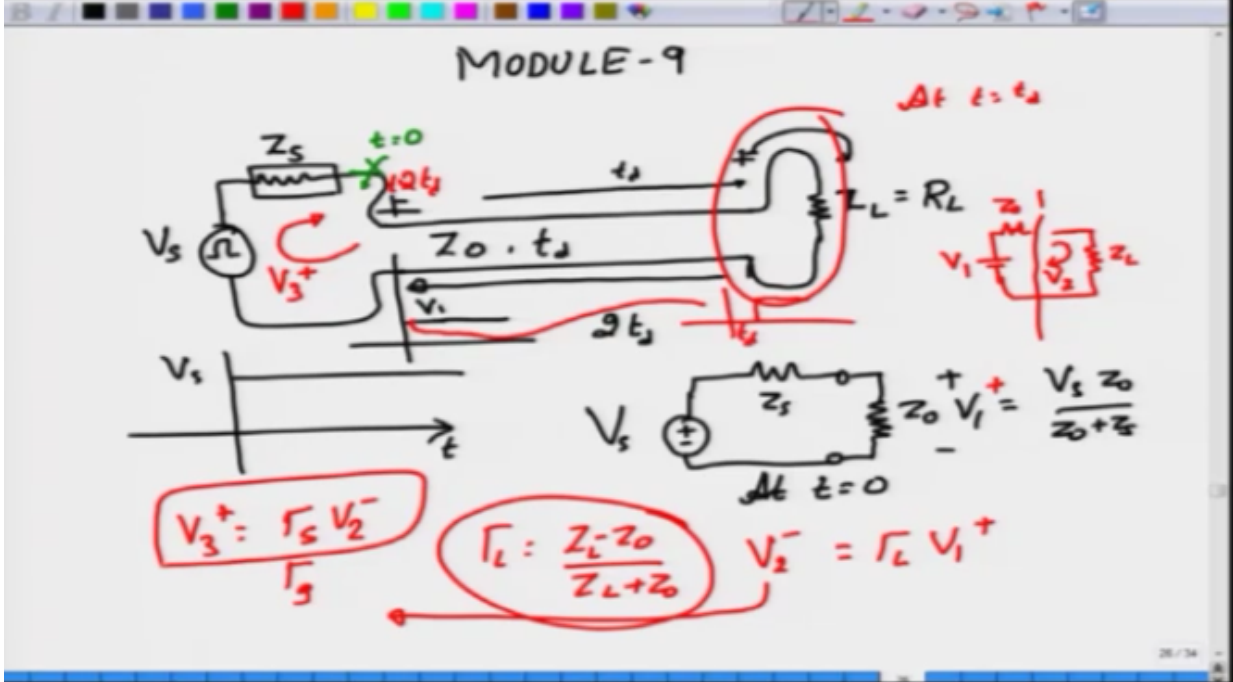 MODULE-9
At t = t_d
Z_S
t=0
2t_d
t_d
Z_L = R_L
V_S
V_3^+
Z_0 , t_d
V_1
2t_d
t_d
Z_0
V_1
V_2
Z_L
V_S
t
V_S
Z_S
+
-
Z_0 V_1^+ = V_S Z_0 / Z_0+Z_S
At t=0
V_3^+ = Γ_S V_2^-
Γ_g
Γ_L = Z_L-Z_0 / Z_L+Z_0
V_2^- = Γ_L V_1^+
26 / 34